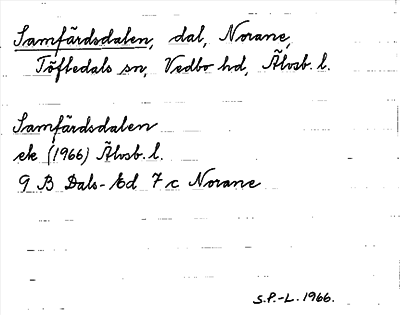 Samfärdsdalen, dal, Norane,
Töftedals sn, Vedbo hd, Älvsb. l.
Samfärdsdalen
ek (1966) Älvsb. l.
9 B Dals-Ed 7 c Norane
S.P.-L. 1966.